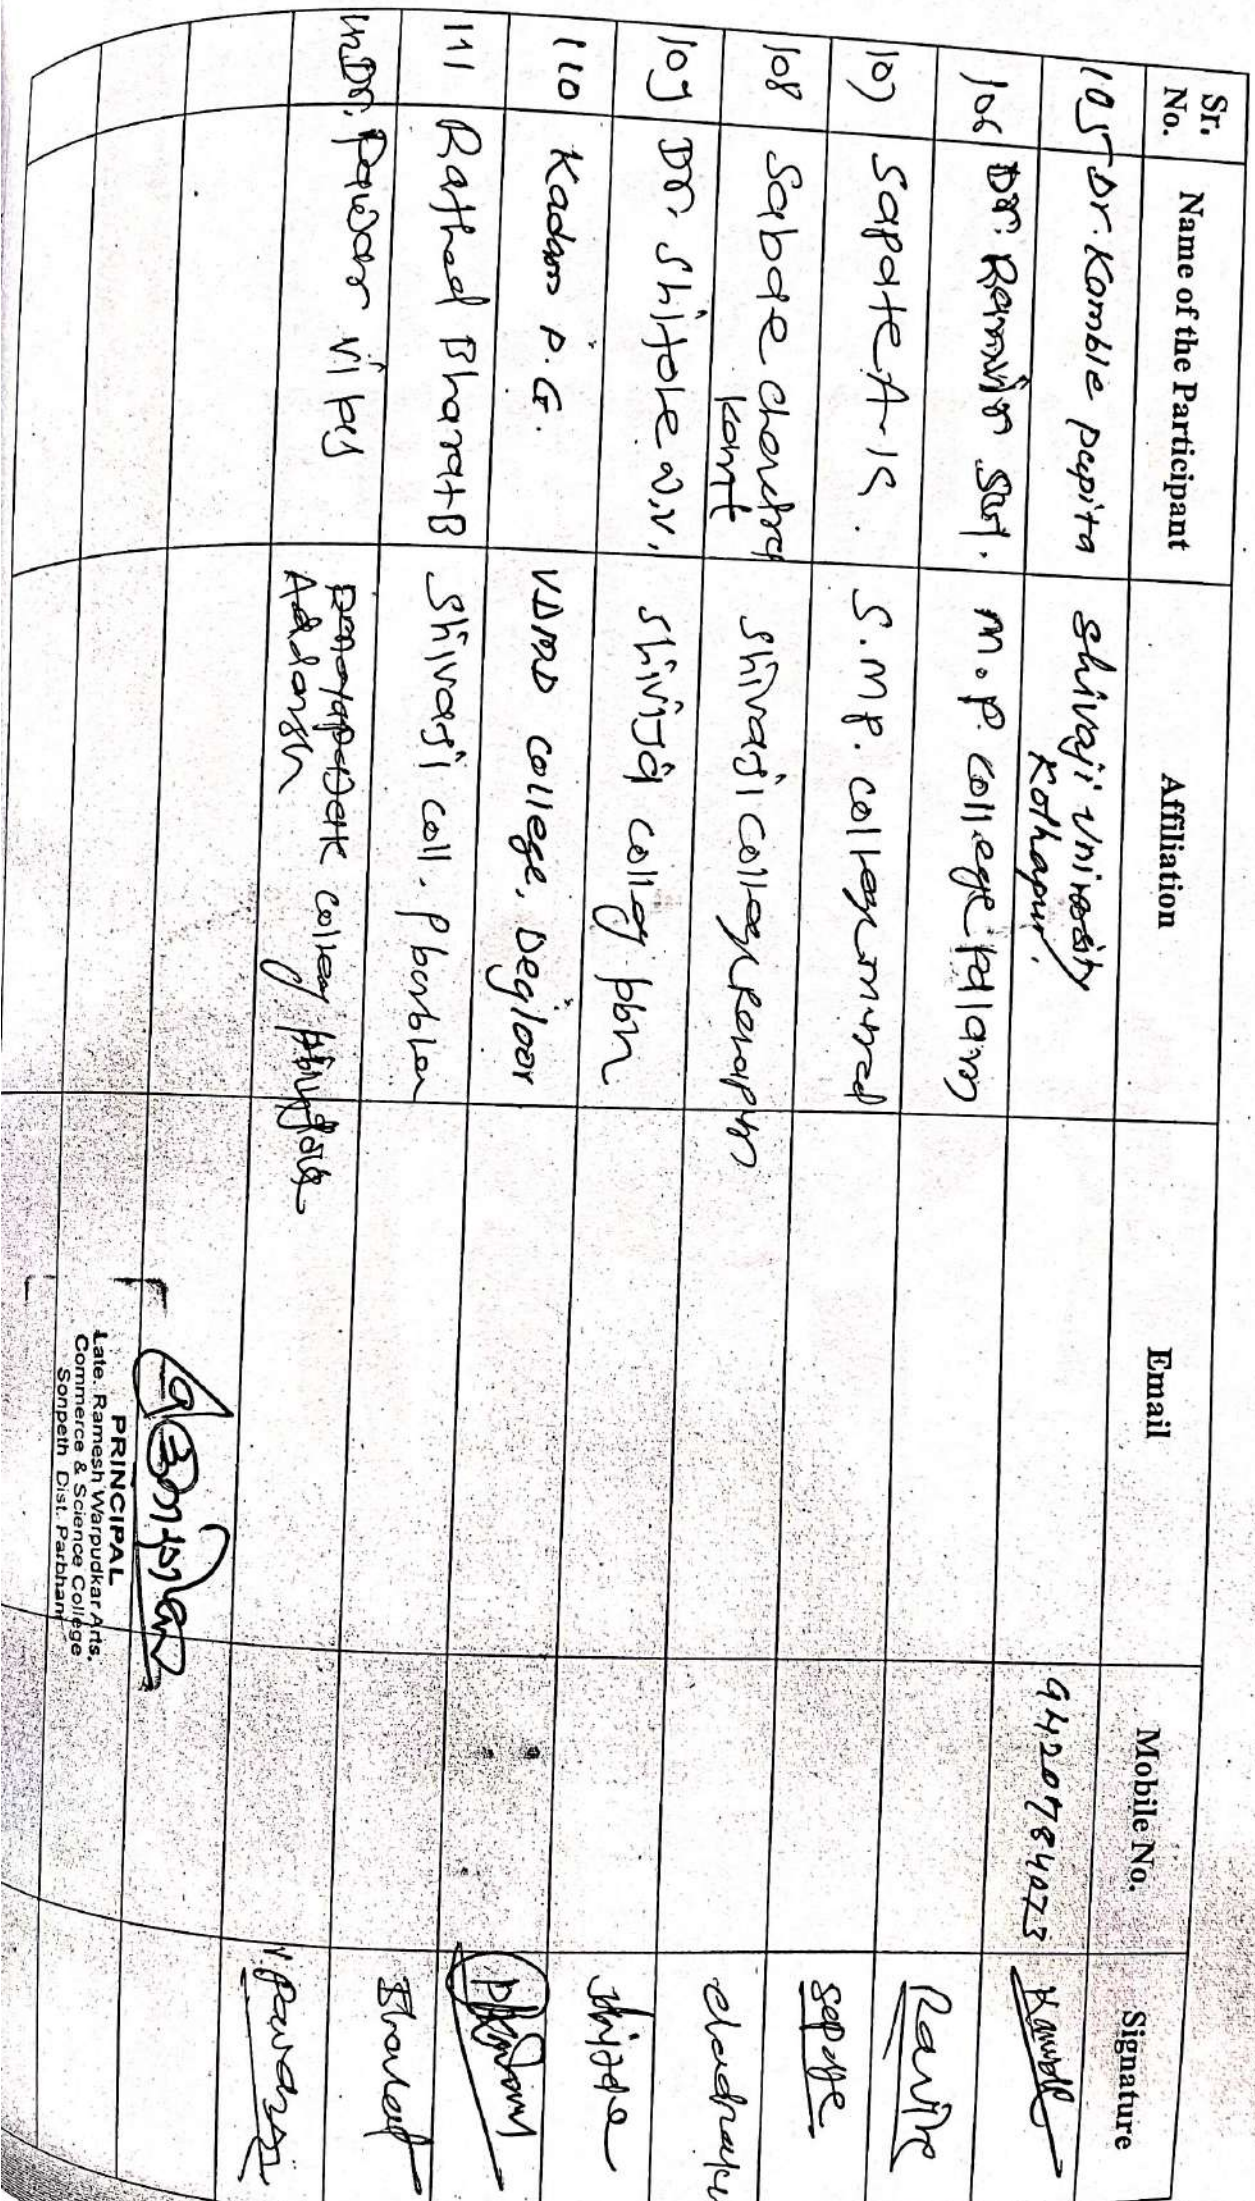 Sr. No. Name of the Participant Affiliation Email Mobile No. Signature
105 Dr. Kamble pupita shivaji University Kolhapur. 9420784073 Kamble
106 Dr. Ranvir M.P. college
107 Sapate A. S. S.M.P. college Sapate
108 Sabae Chandra kant Shivaji College Renapur
109 Dr. Shitole V.V. Shivaji College pbn
110 Kadam P.G. VDMD College, Degloor
111 Rathod Bharat B Shivaji Coll. Bharat
112 Dr. Pawar Adarsh College V.Pawar
PRINCIPAL
Late. Ramesh Warpudkar Arts,
Commerce & Science College
Sonpeth Dist. Parbhani